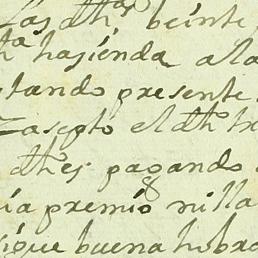 las dhas beinte
ha hasienda a la
estando presente
Zasepto el dho tr
dhes pagando
ia premio nilla
sigue buena hobra